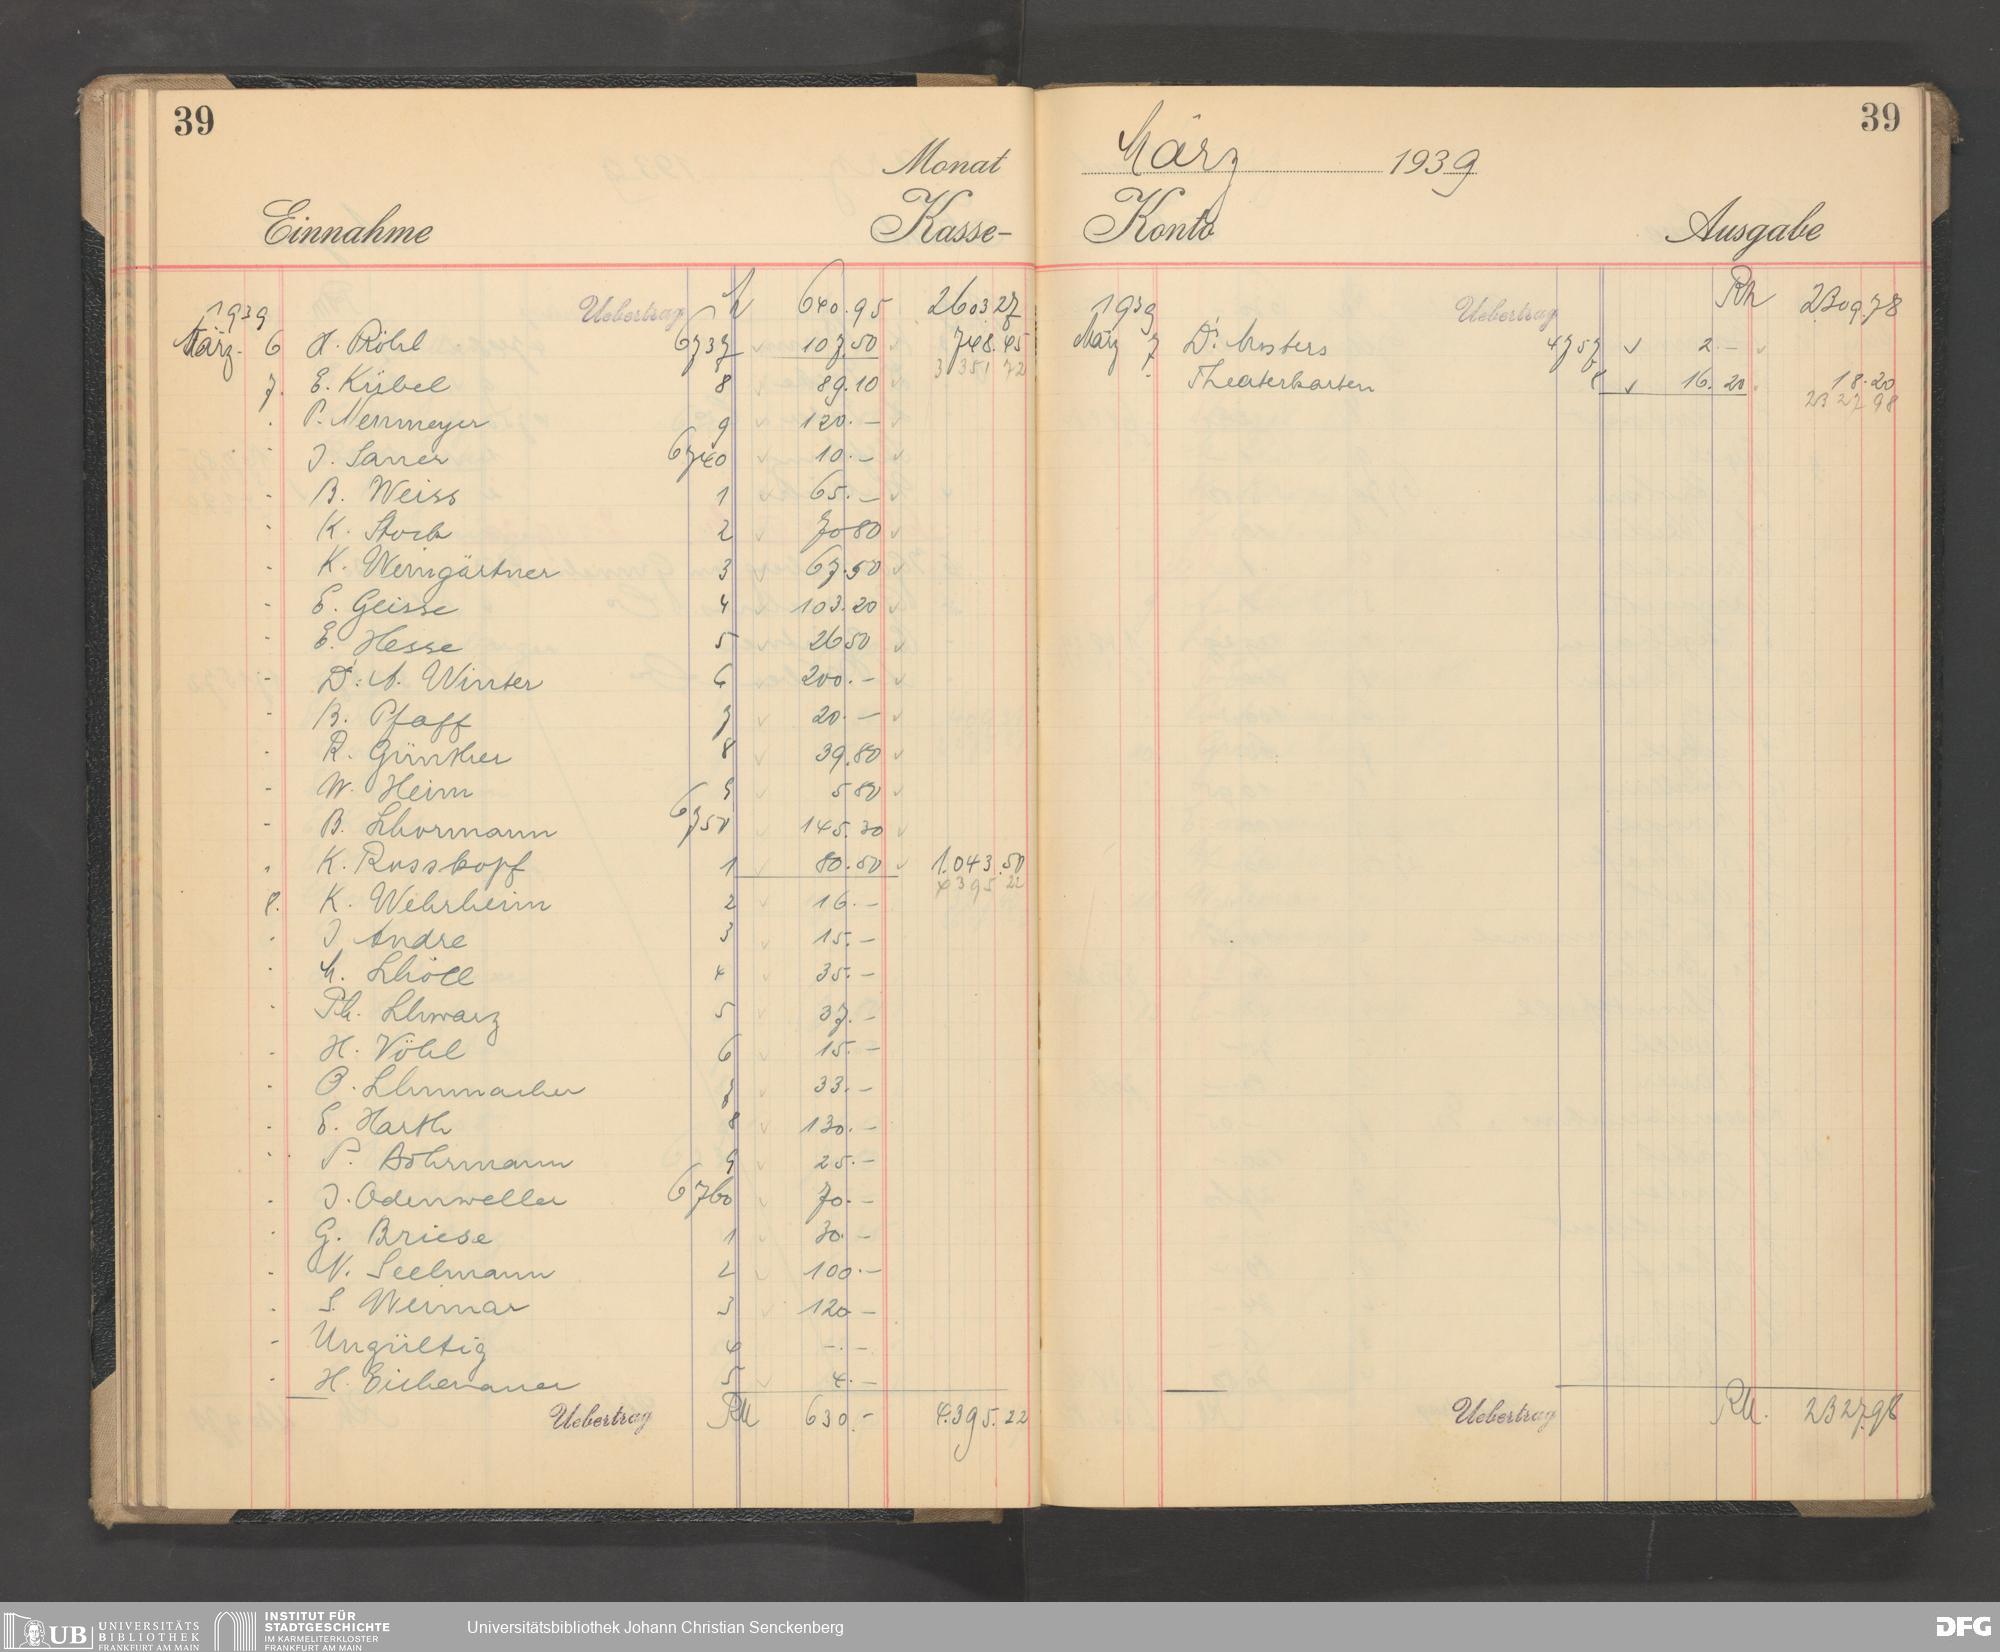 39
Monat
Einnahme Kasse-
1939 Uebertrag 640.95 2603.27
März 6 H. Röhl 6737 107.50 748.45
3351 72
7. E. Kübel 8 89.10
P. Nennmeyer 9 120.-
J. Sauer 6740 10.-
B. Weiss 1 65.-
K. Stock 2 70 80
K. Weingärtner 3 67.50
E. Geisse 4 103.20
E. Hesse 5 26 50
Dr. A. Winter 6 200.-
B. Pfaff 7 20.-
R. Günther 8 39.80
W. Heim 9 5 80
B. Schormann 6750 145.30
K. Rosskopf 1 80.50 1.043.50
4395 22
8. K. Wehrheim 2 16.-
J Andre 3 15.-
M. Schöll 4 35.-
Ph. Schwarz 5 37.-
H. Vöhl 6 15.-
O. Schumacher 7 33.-
E. Harth 8 130.-
P. Dohrmann 9 25.-
J. Odenweller 6760 70.-
G. Briese 1 30.-
N. Seelmann 2 100.-
S. Weimar 3 120 -
Ungültig 4 -.-
H. Eichenauer 5 4.-
Uebertrag RM 630.- 4.395.22
39
März 1939
Konto Ausgabe
1939 Uebertrag RM 2309.78
März 7 Dr. Mosters 4757 2.-
Theaterkarten 8 16.20 18.20
2327 98
Uebertrag RM. 2327.98
UB UNIVERSITÄTS
BIBLIOTHEK
FRANKFURT AM MAIN
INSTITUT FÜR
STADTGESCHICHTE
IM KARMELITERKLOSTER
FRANKFURT AM MAIN
Universitätsbibliothek Johann Christian Senckenberg
DFG